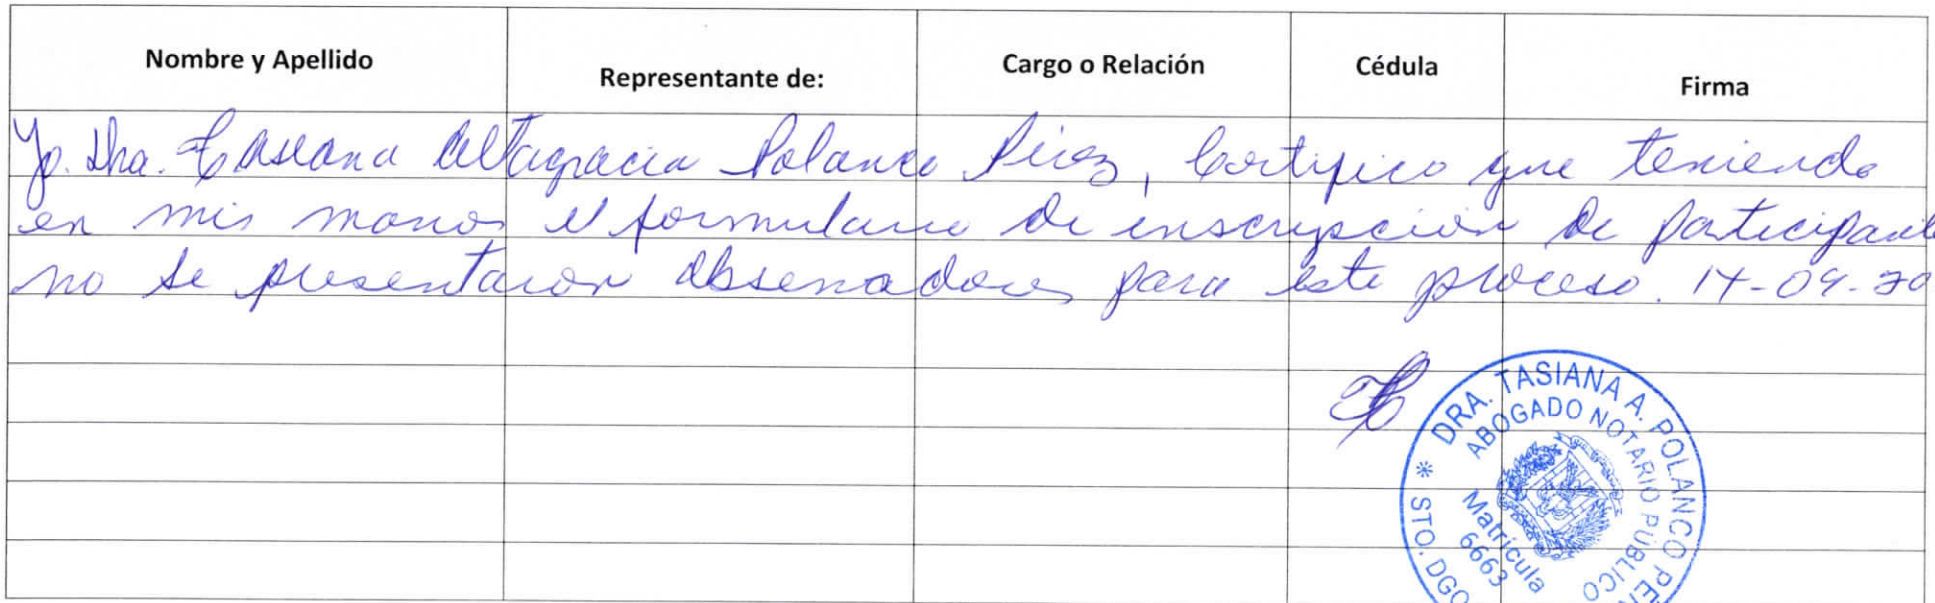 Nombre y Apellido
Representante de:
Cargo o Relación
Cédula
Firma
Yo. Dra. Tasiana Altagracia Polanco Pérez, Certifico que teniendo
en mis manos el formulario de inscripción de participante
no se presentaron observadores para este proceso. 14-09-20
DRA. TASIANA A. POLANCO PE
ABOGADO NOTARIO PÚBLICO
Matrícula
6663
* STO. DGO